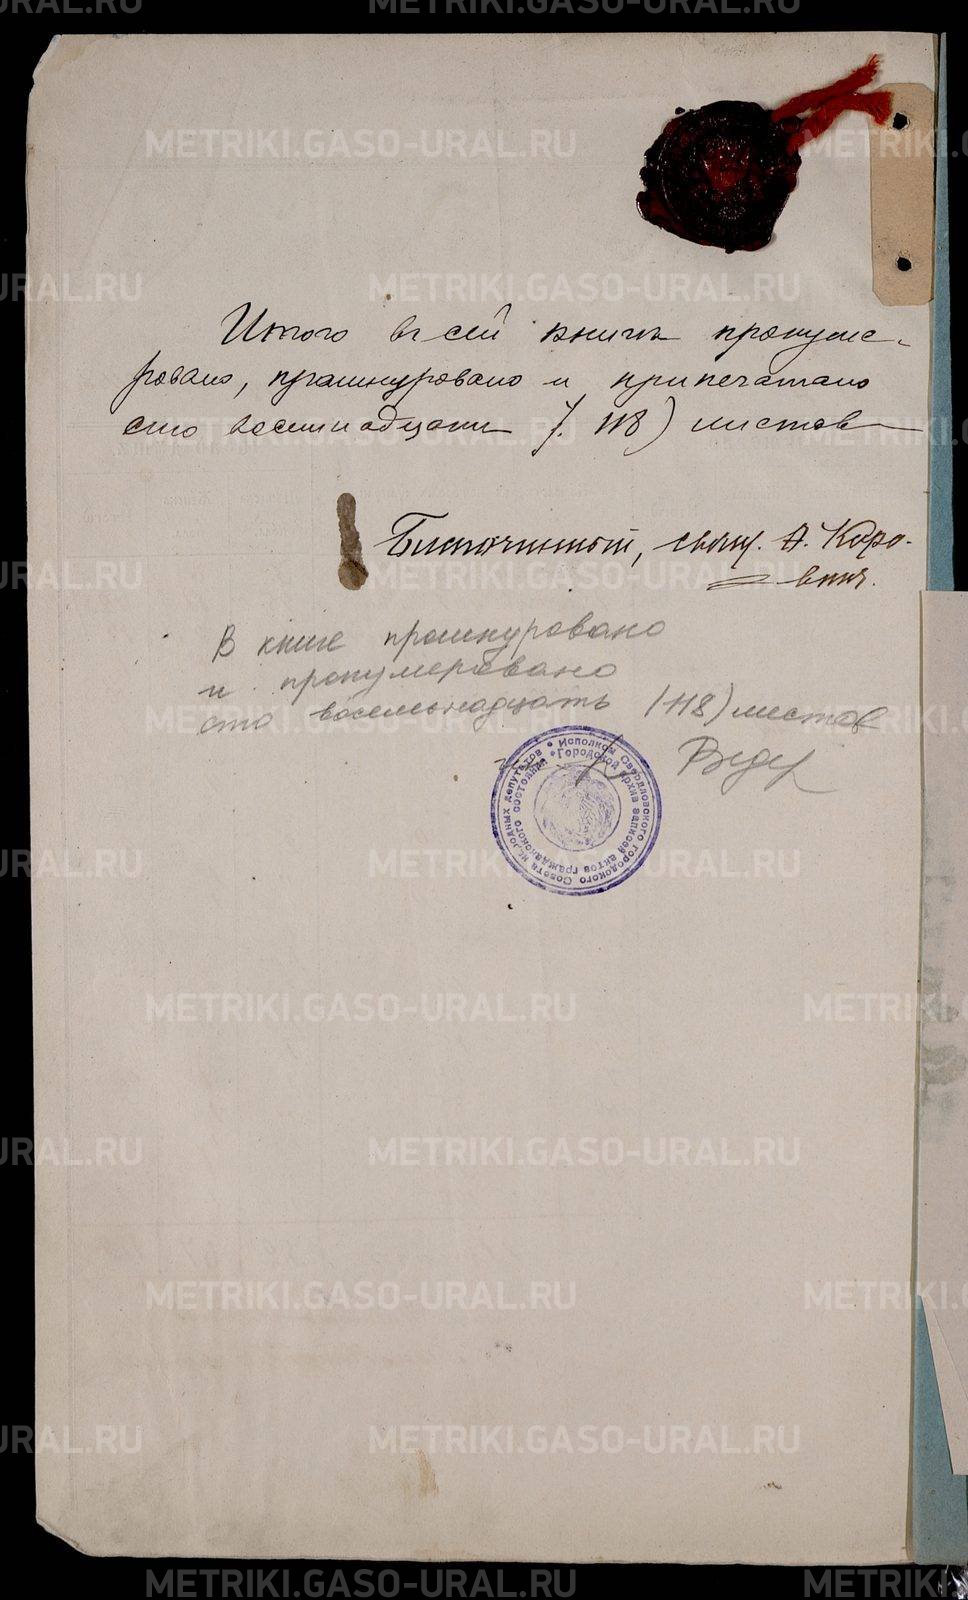 Итого въ сей книгѣ пронуме-
ровано, прошнуровано и припечатано
сто восемнадцать /. 118) листовъ
Благочинный, свящ. А. Коро-
винъ.
В книге прошнуровано
и пронумеровано
сто восемьнадцать (118) листов
Исполком Свердловского городского Совета народных депутатов
Городской архив записей актов гражданского состояния
METRIKI.GASO-URAL.RU